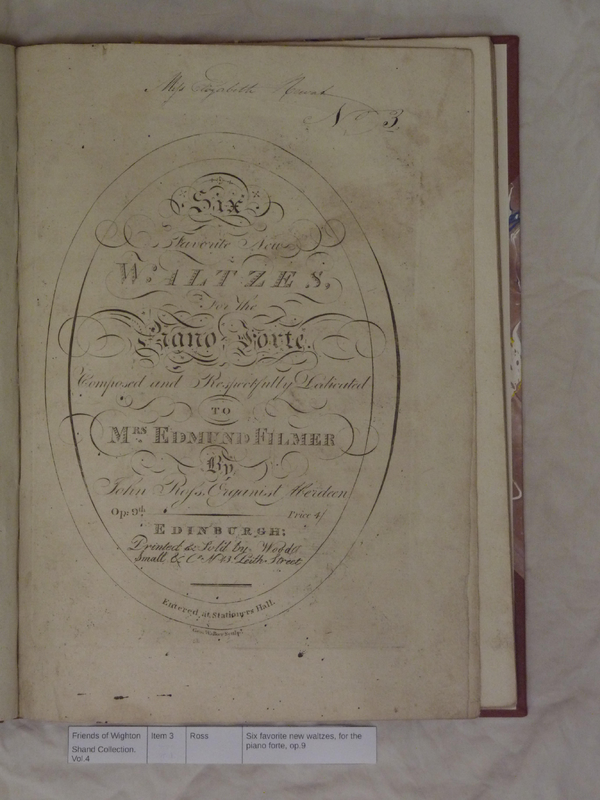 Miss Elizabeth
No 3
Six
Favorite New
WALTZES,
For the
Piano Forte.
Composed and Respectfully Dedicated
TO
MRS EDMUND FILMER
By
John Ross, Organist Aberdeen
Op: 9th Price 4/
EDINBURGH:
Printed & Sold by Wood
Small & Co No 13 Leith Street
Entered at Stationers Hall.
Friends of Wighton
Shand Collection.
Vol.4
Item 3
Ross
Six favorite new waltzes, for the
piano forte, op.9